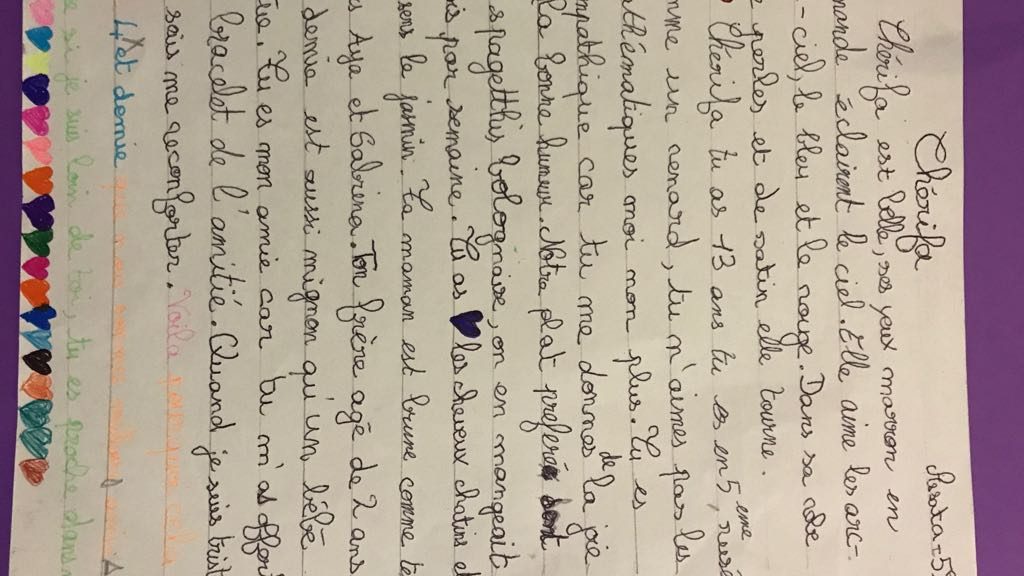 Chérifa
Chérifa est belle, ses yeux marron en
mande éclairent le ciel. Elle aime les arc-
-ciel, le bleu et le rouge. Dans sa robe
e perles et de satin elle tourne.
Chérifa tu as 13 ans tu es en 5eme, rusé
mme un renard, tu n'aimes pas les
thématiques moi non plus. Tu es
mpathique car tu me donnes de la joie
la bonne humeur. Notre plat préféré
spagetthis bolognaise, on en mangeait
is par semaine. Tu as les cheveux chatins et
sens le jasmin. Ta maman est brune comme te
s Aya et Sabrina. Ton frère agé de 2 ans
demie est aussi mignon qu'un bébé
Tu es mon amie car tu m'as offert
bracelet de l'amitié. Quand je suis trist
sais me reconforter. Voila pourquoi cela
4 et demie que nous sommes
e si je suis loin de toi, tu es proche dans